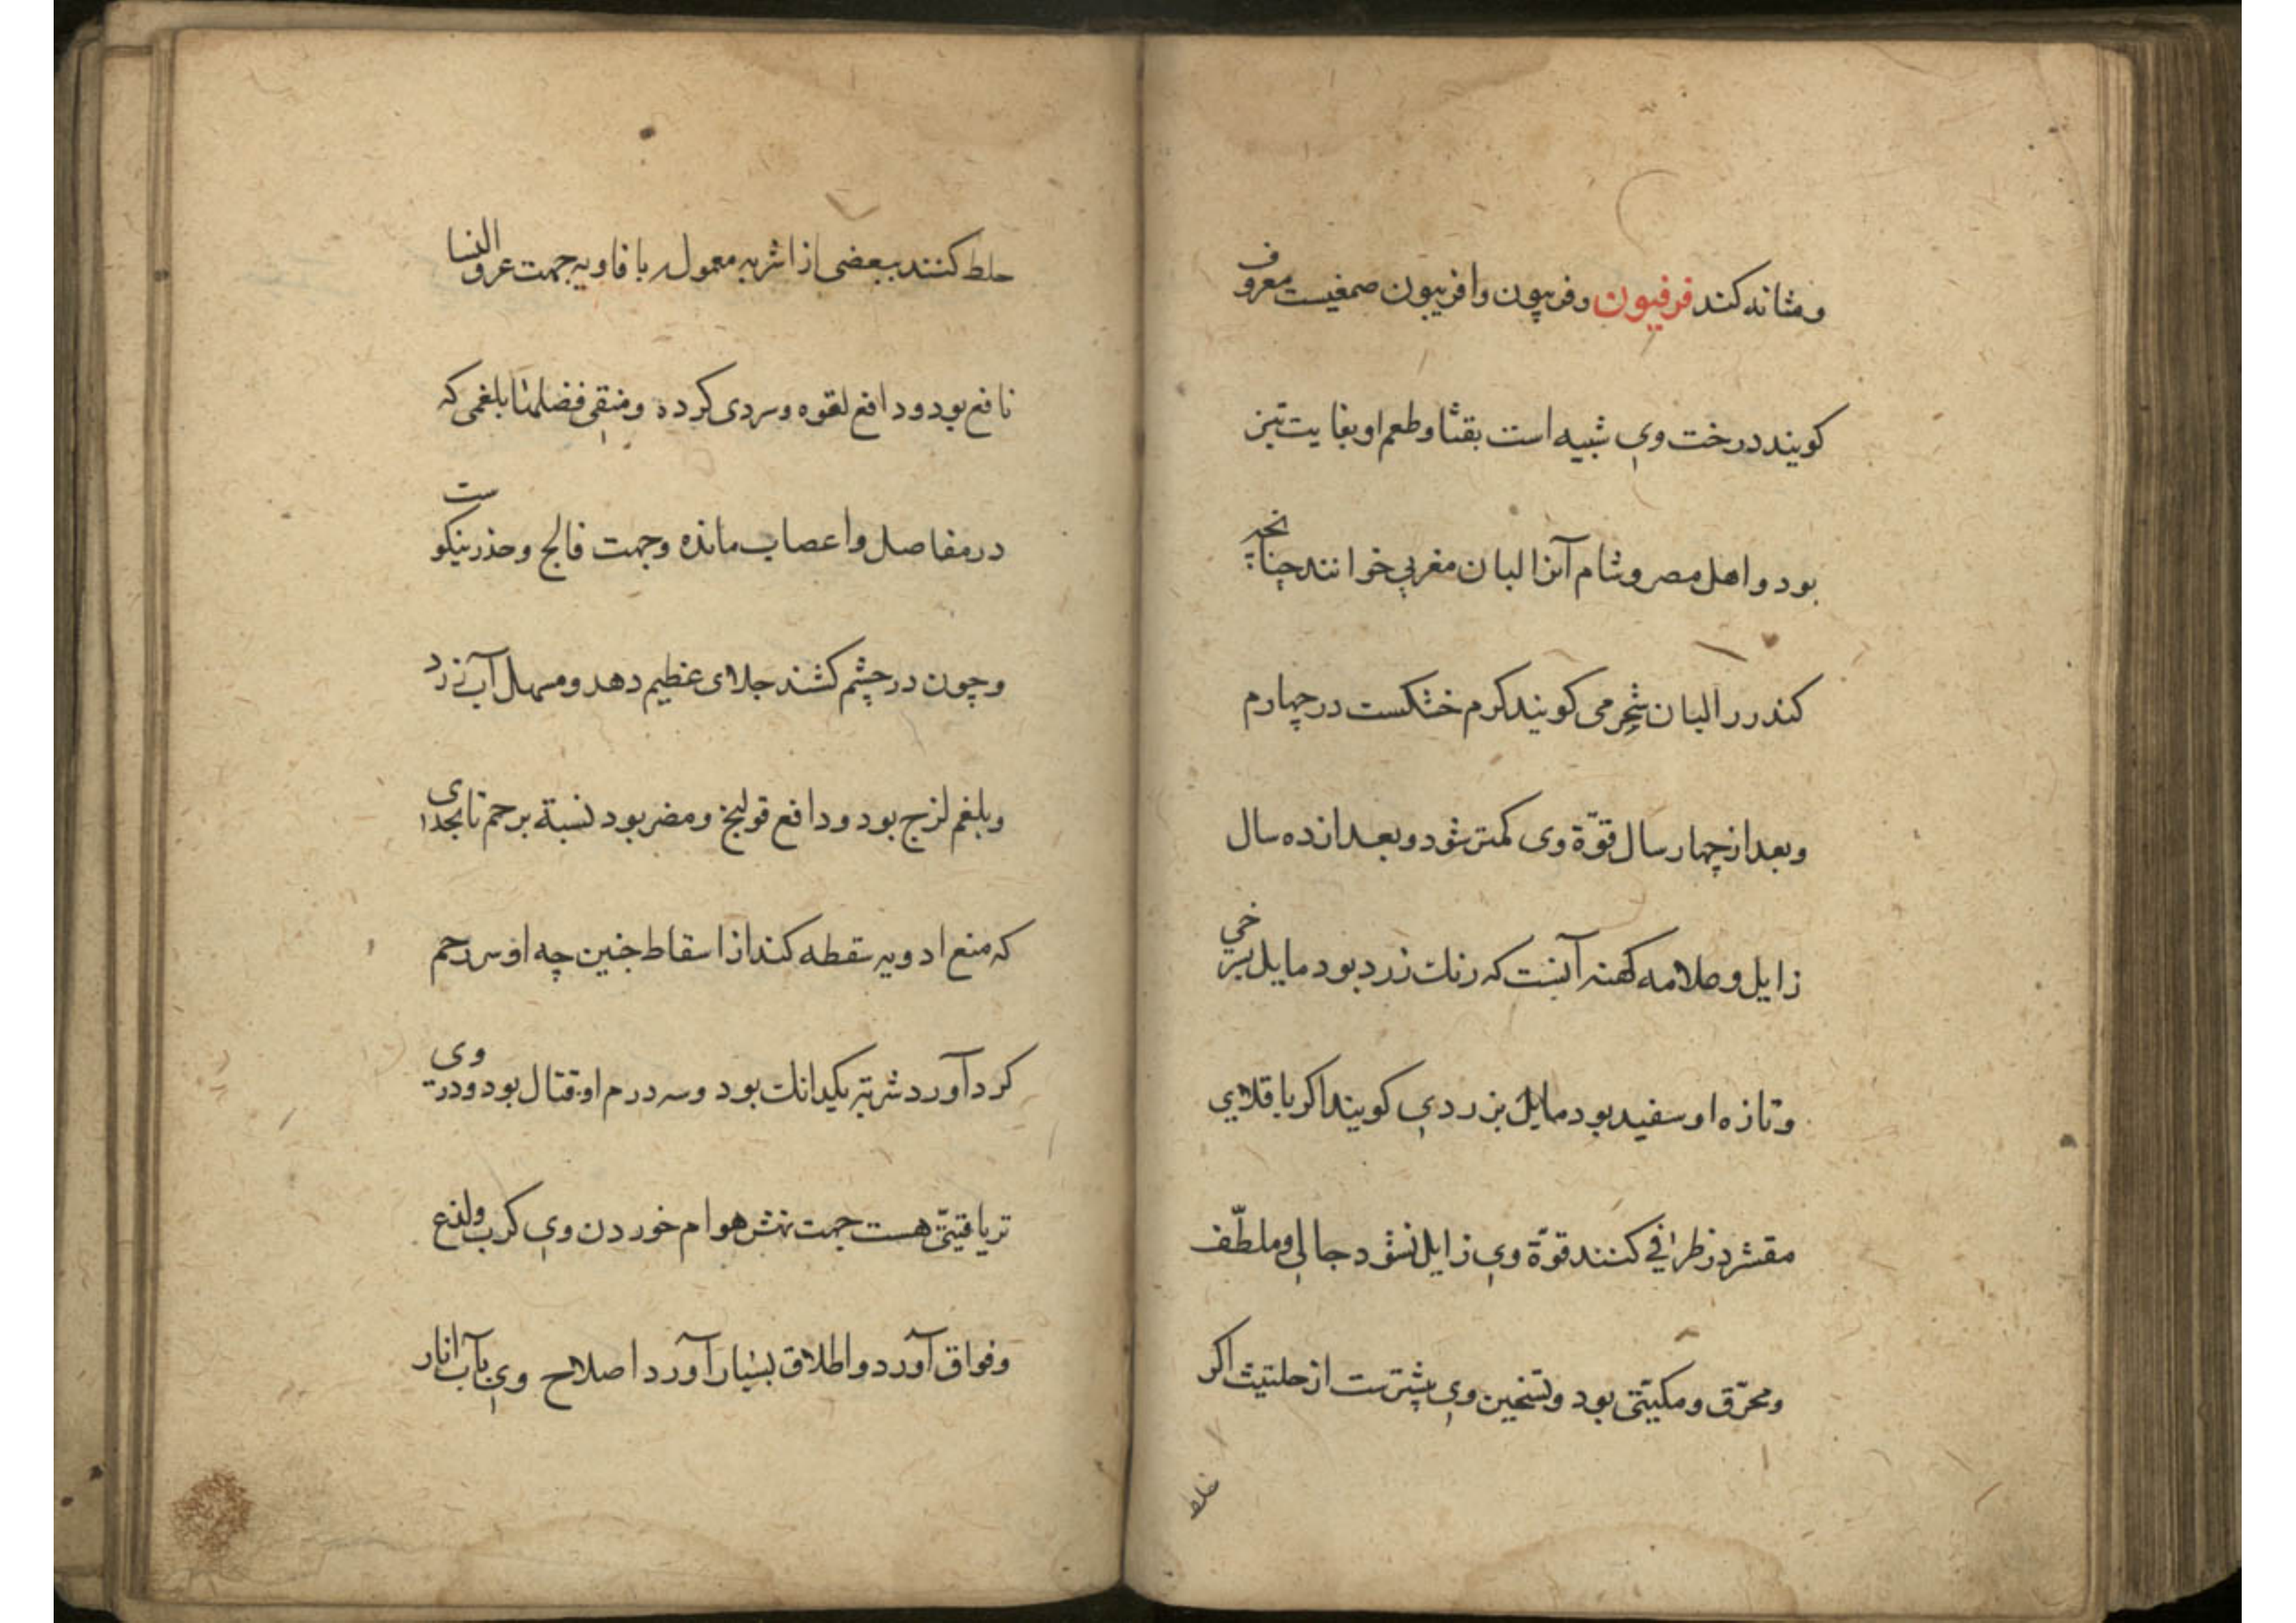 ومثانه کند فرفیون وفربیون وافربیون صمغیست معروف
کویند درخت وی شبیه است بقثا وطعم او بغایت تیز
بود واهل مصر وشام آنرا لبان مغربی خوانند چنانچه
کندر را لبان شجر می کویند کرم خشکست در چهارم
وبعد از چهار سال قوّة وی کمتر شود وبعد از ده سال
زایل وعلامه کهنه آنست که رنك زرد بود مایل بسرخی
وتازه او سفید بود مایل بزردی کویند اکر باقلای
مقشر در ظرافی کنند قوّة وی زایل نشود جالی وملطّف
ومحرّق بود وتسخین وی بیشترست از حلتیث اکر
خلط
خلط کنند ببعضی از اشربه معمول با فاویه جهت عرق النسا
نافع بود ودافع لقوه وسردی کرده ومنقی فضلهٔا بلغمی که
در مفاصل واعصاب مانده وجهت فالج وخدر نیکوست
وچون در چشم کشند جلای عظیم دهد ومسهل آب زرد
وبلغم لزج بود ودافع قولنج ومضر بود نسبة برحم تا بحدی
که منع ادویه سقطه کند از اسقاط جنین چه او سر رحم
کرد آورد شربتی یکدانك بود وسه درم او قتال بود ودر وی
تریاقیتی هست جهت نهش هوام خوردن وی کرب ولذع
وفواق آورد واطلاق بسیار آورد اصلاح وی بآب انار